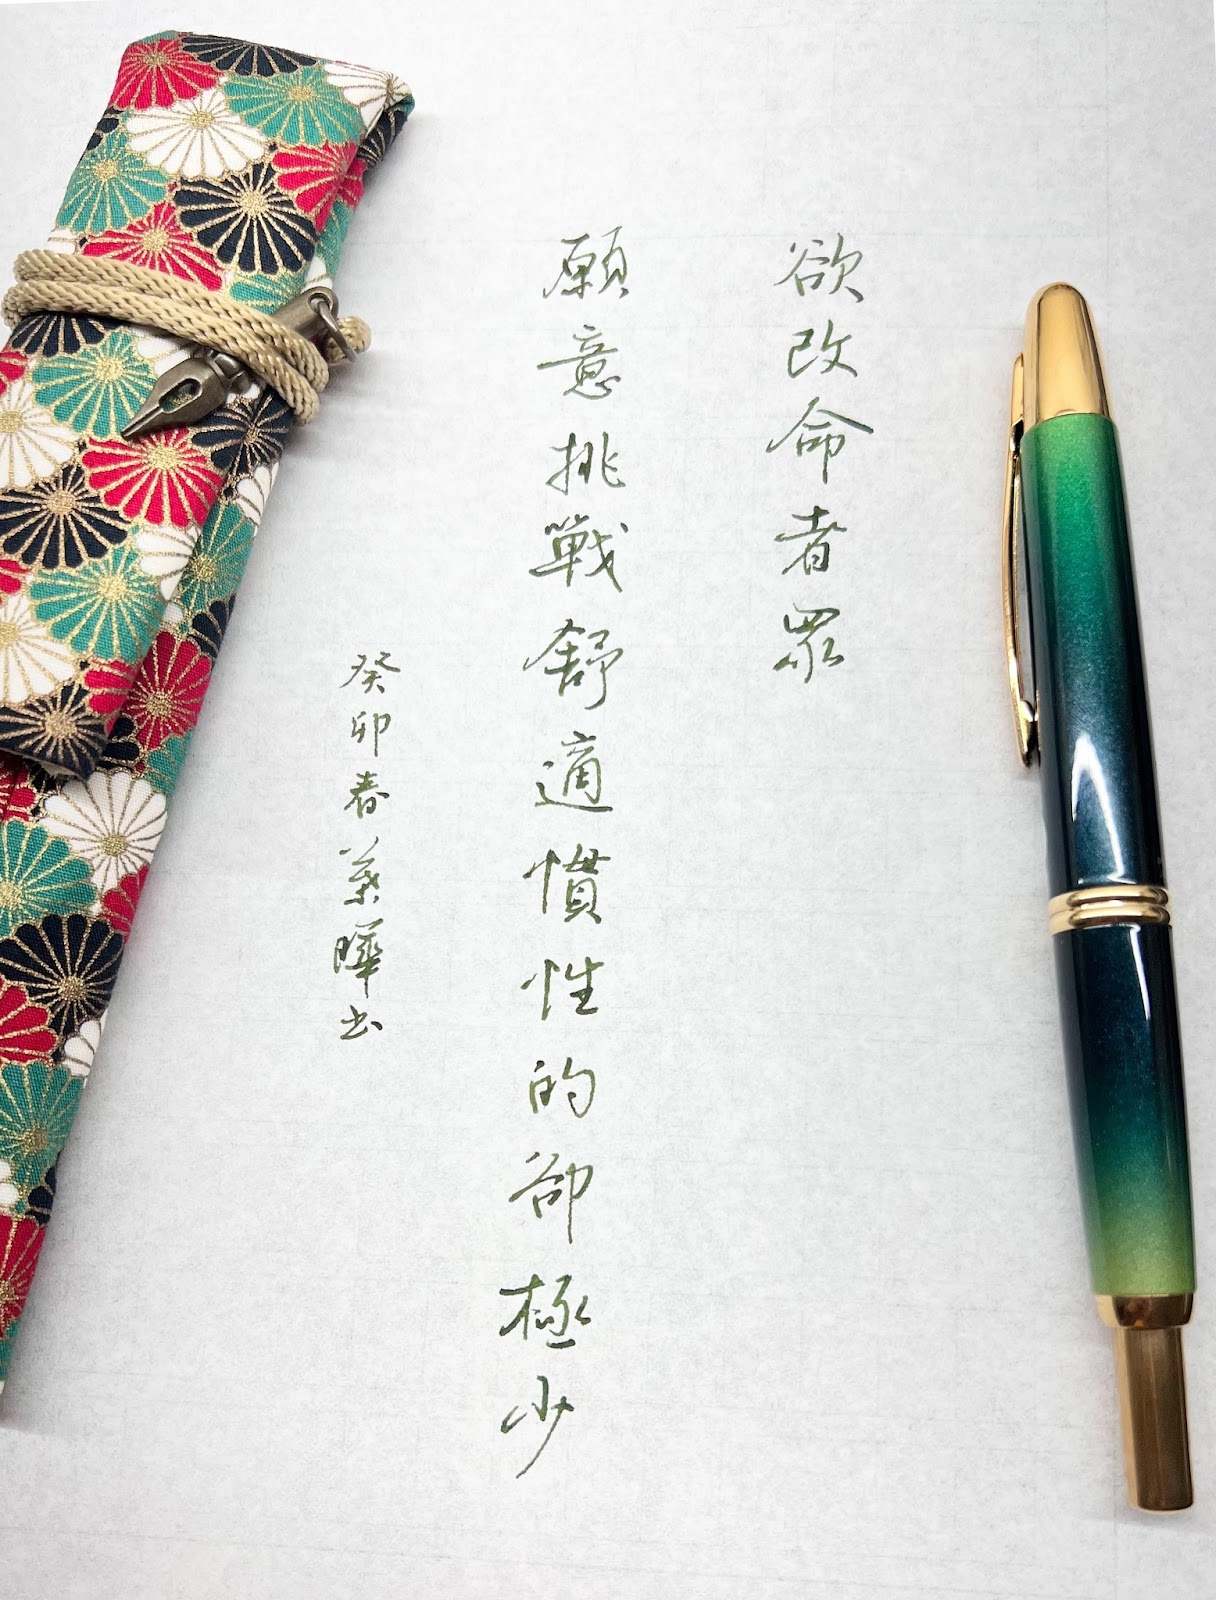 欲改命者眾
願意挑戰舒適慣性的卻極少
癸卯春葉曄書